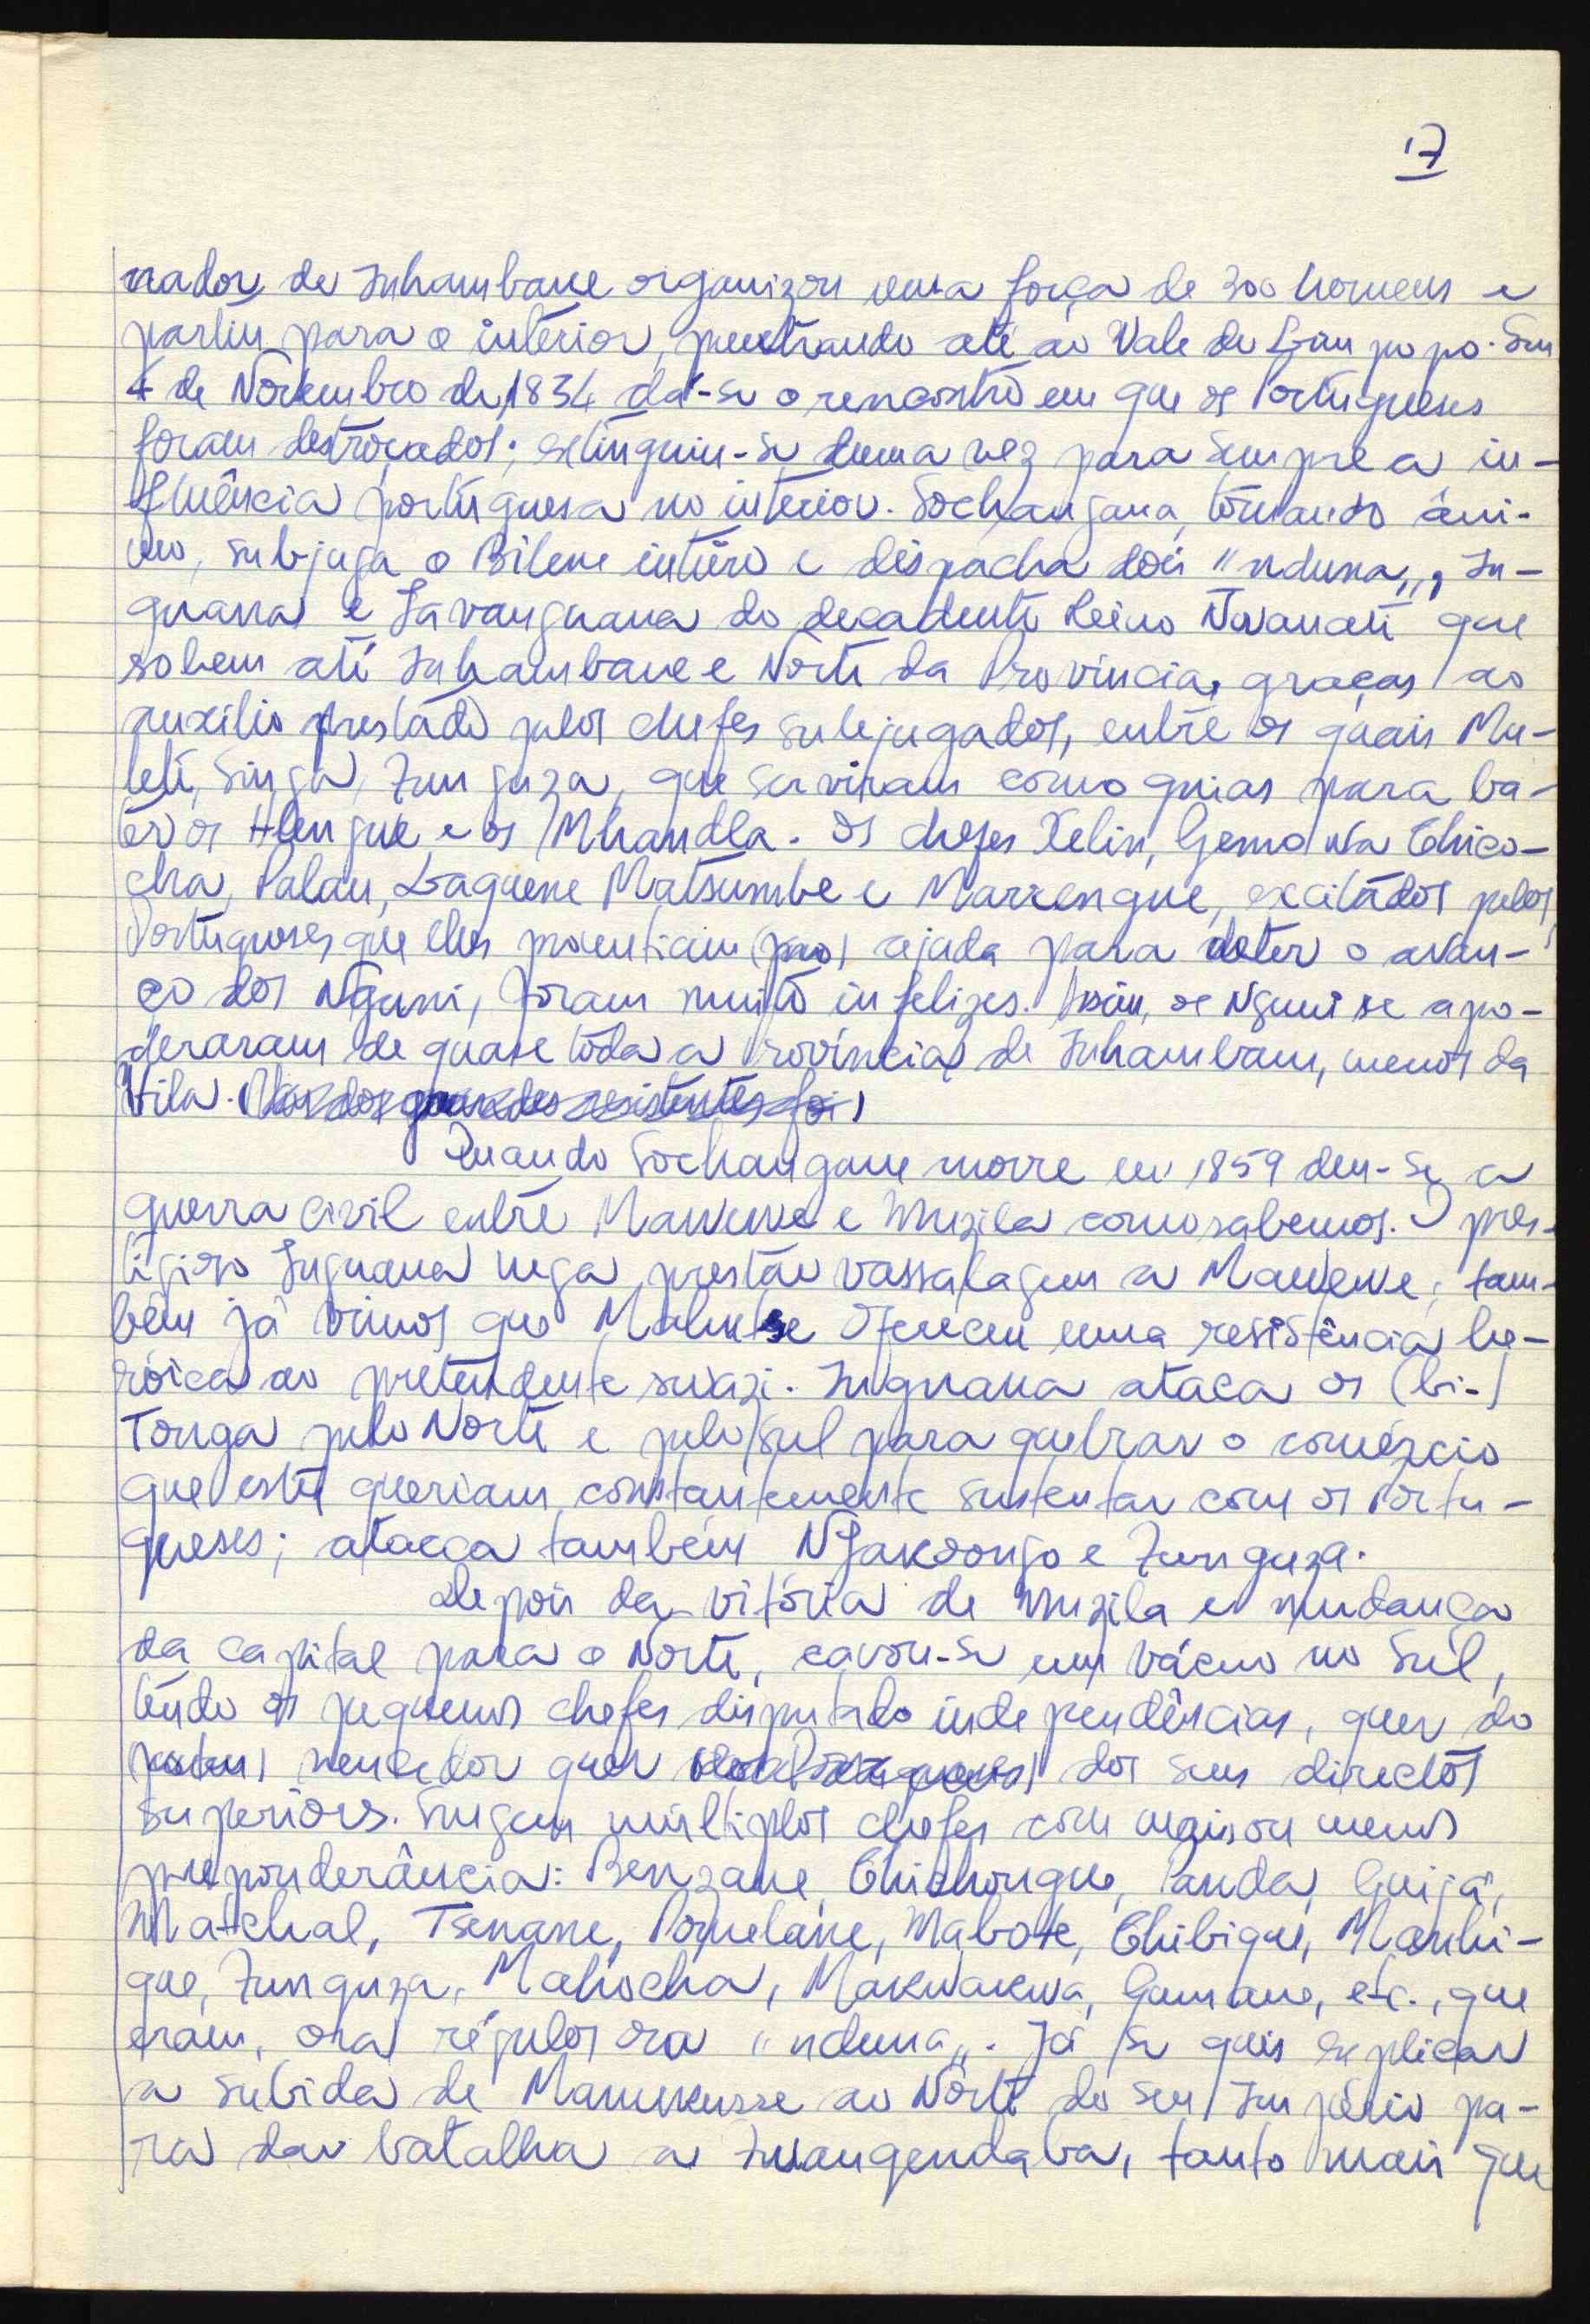 17
nador de Inhambane organizou uma força de 300 homens e
partiu para o interior, penetrando até ao Vale do Limpopo. Em
4 de Novembro de 1834 dá-se o rencontro em que os Portugueses
foram destroçados; extinguiu-se duma vez para sempre a in-
fluência portuguesa no interior. Sochangana, tomando âni-
mo, subjuga o Bilene inteiro e despacha dois "nduna", In-
guana e Javanguana do decadente Reino Nwanati que
sobem até Inhambane e Norte da Província, graças ao
auxílio prestado pelos chefes subjugados, entre os quais Mu-
leti, Singa, Zunguza, que serviram como guias para ba-
ter os Hlengue e os Mhandla. Os chefes Xelin, Gemo Wa Chico-
cha, Palau, Laquene Matsumbe e Marrengue, excitados pelos
Portugueses que lhes prometiam (pro) ajuda para deter o avan-
ço dos Nguni, foram muito infelizes. Assim, os Nguni se apo-
deraram de quase toda a Província de Inhambane, menos da
Vila. (Um dos grandes resistentes foi)
Quando Sochangane morre em 1859 deu-se a
guerra civil entre Mawewe e Muzila como sabemos. O pres-
tigioso Inguana nega prestar vassalagem a Mawewe; tam-
bém já vimos que Mahuntse ofereceu uma resistência he-
róica ao pretendente swazi. Inguana ataca os (bi-)
Tonga pelo Norte e pelo Sul para quebrar o comércio
que estes queriam constantemente sustentar com os Portu-
gueses; atacca também Nyakoongo e Zunguza.
Depois da vitória de Muzila e mudança
da capital para o Norte, cavou-se um vácuo no Sul,
tendo os pequenos chefes disputado independências, quer do
vencedor quer (dos Portugueses) dos seus directos
superiores. Surgem múltiplos chefes com mais ou menos
preponderância: Benzane, Chidhongue, Panda, Guijá,
Matchal, Tsenane, Poquelane, Mabote, Chibique, Manhi-
que, Zunguza, Mahocha, Makwakwa, Gumane, etc., que
eram, ora régulos ora "nduna". Já se quis explicar
a subida de Manukusse ao Norte do seu Império pa-
ra dar batalha a Zwangendaba, tanto mais que